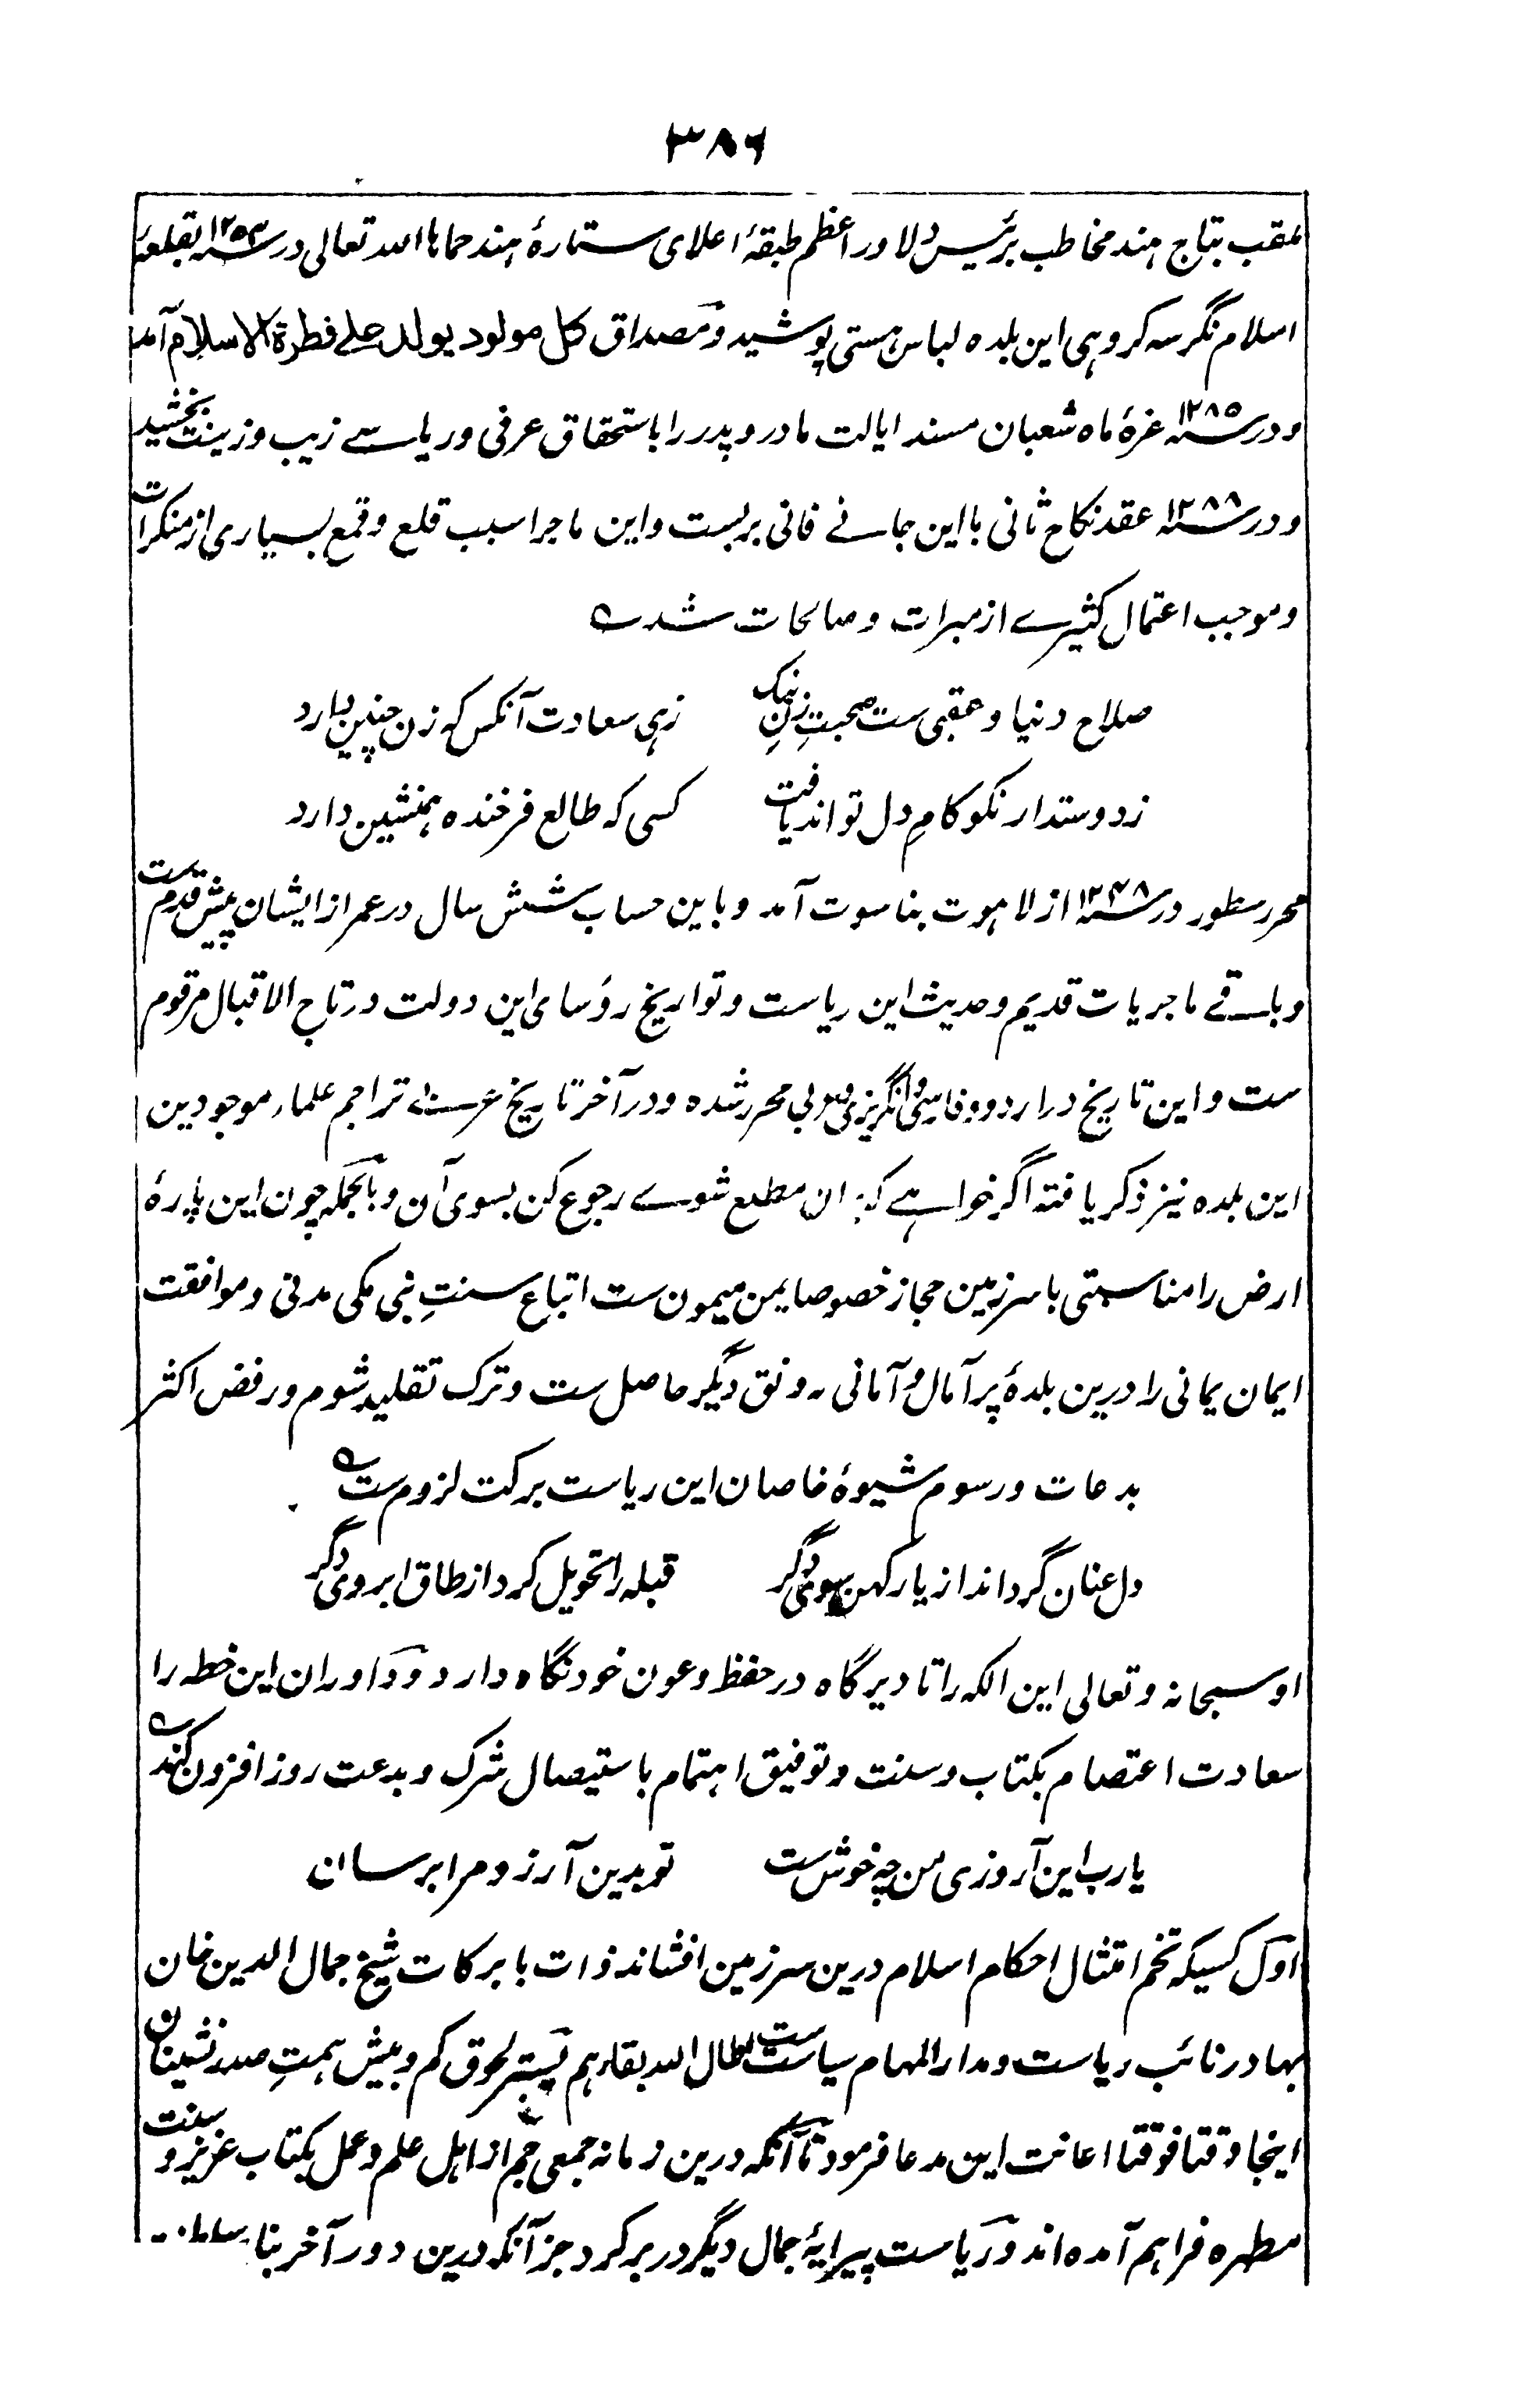 ۳۸۶
ملقب بتاج ہند مخاطب برئیس دلاور اعظم طبقۂ اعلای ستارۂ ہند حماہا اللہ تعالی در ۱۲۵۴ سنہ بقلعۂ
اسلام نگر سہ کروہی این بلدہ لباس ہستی پوشید و مصداق کل مولود یولد علے فطرة الاسلام آمد
و در ۱۲۸۵ سنہ غرۂ ماہ شعبان مسند ایالت مادر و پدر را باستحقاق عرفی و ریاستے زیب و زینت بخشید
و در ۱۲۸۸ سنہ عقد نکاح ثانی با این جانے فانی بربست و این ماجرا سبب قلع و قمع بسیاری از منکرات
و موجب اعتمال کثیرے از مبرات و صالحات شدہ
صلاح دنیا و عقبی ست صحبتِ زنِ نیک زہی سعادت آنکس کہ زن چنین دارد
ز دوستدار نکو کامِ دل تواند یافت کسی کہ طالع فرخندہ ہمنشین دارد
محرر سطور در ۱۲۴۸ سنہ از لاہوت بناسوت آمد و باین حساب شش سال در عمر از ایشان پیش قدم ست
و باقے ماجریات قدیم و حدیث این ریاست و تواریخ رؤسای این دولت در تاج الاقبال مرقوم
ست و این تاریخ در اردو و فارسی و انگریزی و عربی محرر شدہ و در آخر تاریخ عربے تراجم علماء موجودین
این بلدہ نیز ذکر یافتہ اگر خواہے کہ بران مطلع شوے رجوع کن بسوی آن و بالجملہ چون این پارۂ
ارض را مناسبتی با سرزمین حجاز خصوصا یمن میمون ست اتباع سنتِ نبی مکی مدنی و موافقت
ایمان یمانی را درین بلدۂ پر آمال و آمانی رونق دیگر حاصل ست و ترک تقلید شوم و رفض اکثر
بدعات و رسوم شیوۂ خاصان این ریاست برکت لزوم ست
دل عنان گرداند از یار کہن سوی دگر قبلہ را تحویل کرد از طاق ابروی دگر
او سبحانہ و تعالی این الکہ را تا دیرگاہ در حفظ و عون خود نگاہ دارد و داوران این خطہ را
سعادت اعتصام بکتاب و سنت و توفیق اہتمام باستیصال شرک و بدعت روز افزون کند
یارب این آرزوی من چہ خوش ست تو بدین آرزو مرا برسان
اول کسیکہ تخم امتثال احکام اسلام درین سرزمین افشاند ذات بابرکات شیخ جمال الدین خان
بہادر نائب ریاست و مدار المہام سیاست ست اطال اللہ بقاءہم پستر لحوق کم و بیش ہمتِ صدر نشینان
اینجا وقتا فوقتا اعانت این مدعا فرمود تا آنکہ درین زمانہ جمعی جم از اہل علم و عمل بکتاب عزیز و سنت
مطہرہ فراہم آمدہ اند و ریاست پیرایۂ جمال دیگر در بر کرد جز آنکہ درین دور آخر بنا